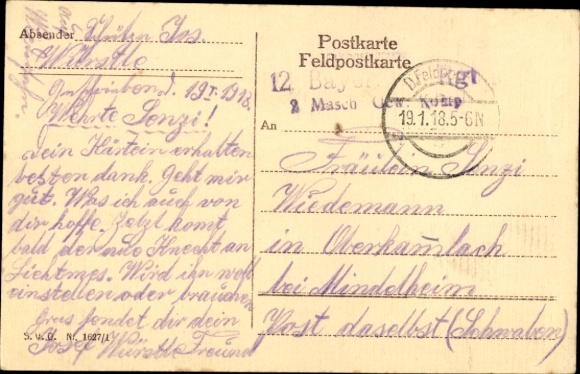 Absender Schütze Jos.
Würstle
Geschrieben d. 19 I. 1918.
Werte Senzi!
Dein Kärtein erhalten
besten dank. Geht mir
gut. Was ich auch von
dir hoffe. Jetzt komt
bald der neue Knecht an
Lichtmes. Wird ihn woll
einstellen oder brauchen
grus sendet dir dein
Josef Würstle Freund
S. u. G. Nr. 1627/1
Postkarte
Feldpostkarte
12 Bayer. Rgt
2 Masch. Gew. Komp
D. Feldpost
19.1.18.5-6N
An
Fräulein Senzi
Wiedemann
in Oberkam̄lach
bei Mindelheim
Post daselbst (Schwaben)